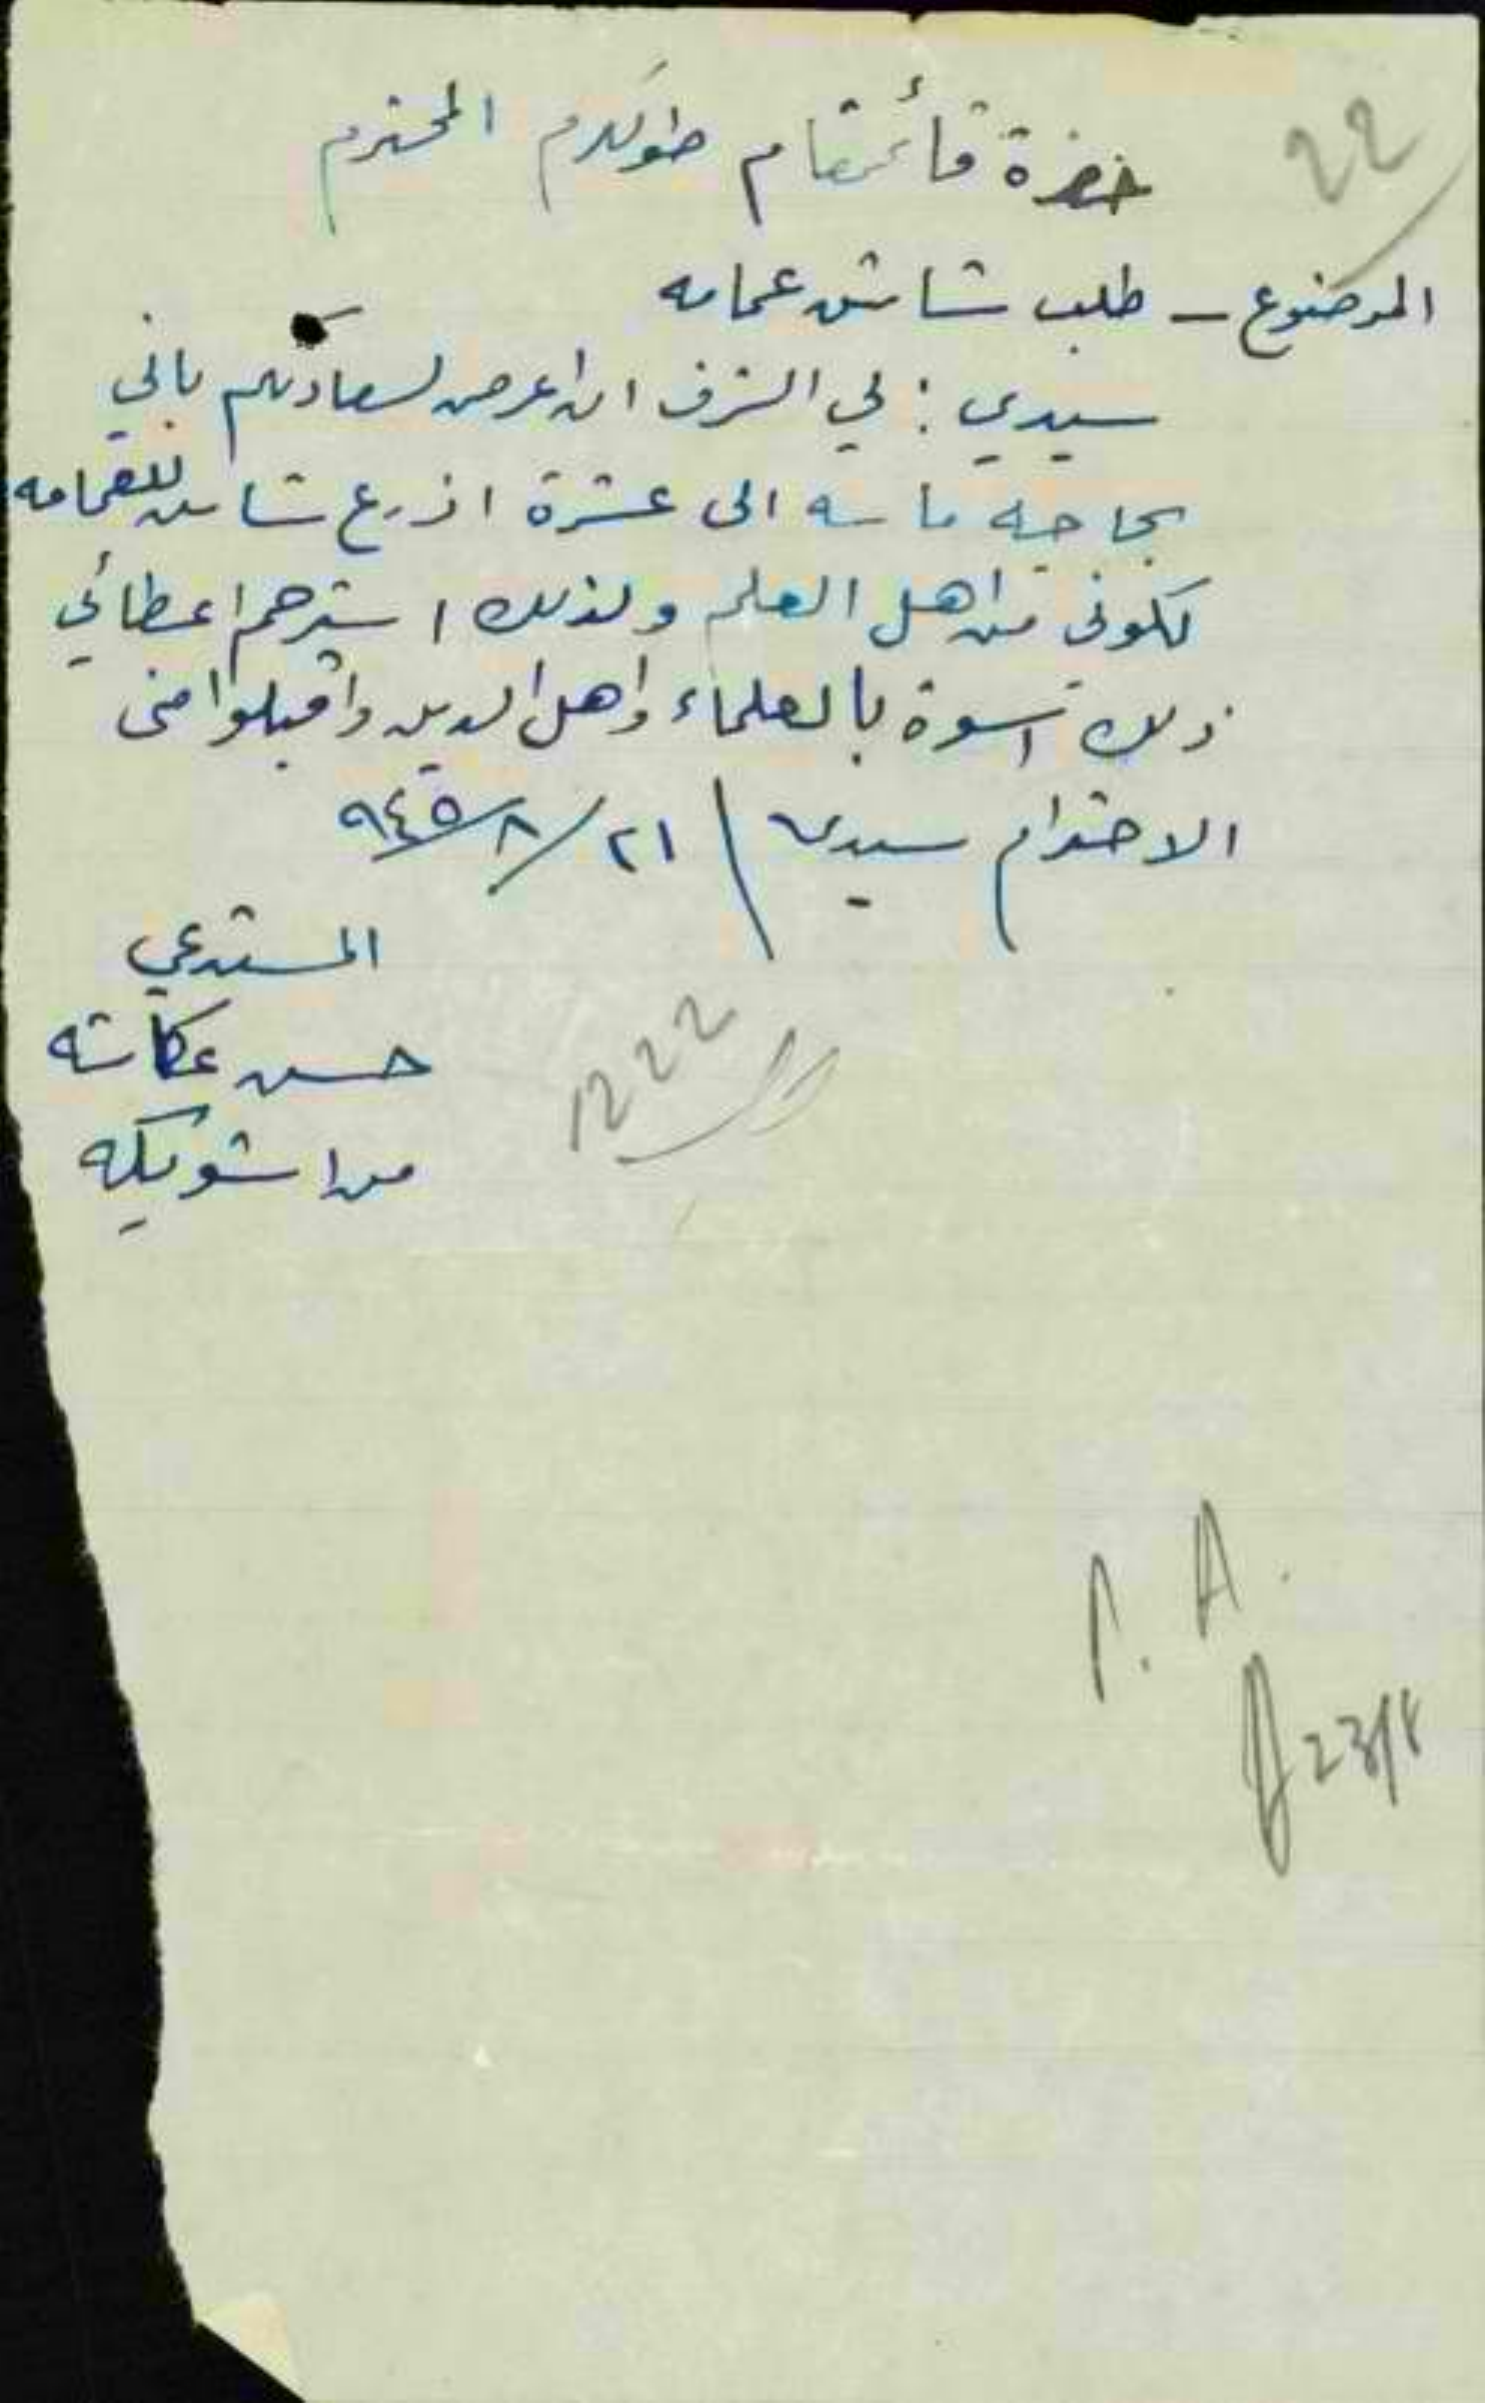 22
حضرة قائمقام طولكرم المحترم
الموضوع - طلب شاش عمامه
سيدي : لي الشرف ان اعرض لسعادتكم باني
بحاجه ماسه الى عشرة اذرع شاش للعمامه
لكوني من اهل العلم ولذلك استرحم اعطائي
ذلك اسوة بالعلماء واهل الدين واقبلوا مني
الاحترام سيدي / ٢١/٨/٩٤٥
المستدعي
حسن عكاشه
من اشويكه
1222
P. A.
23/8